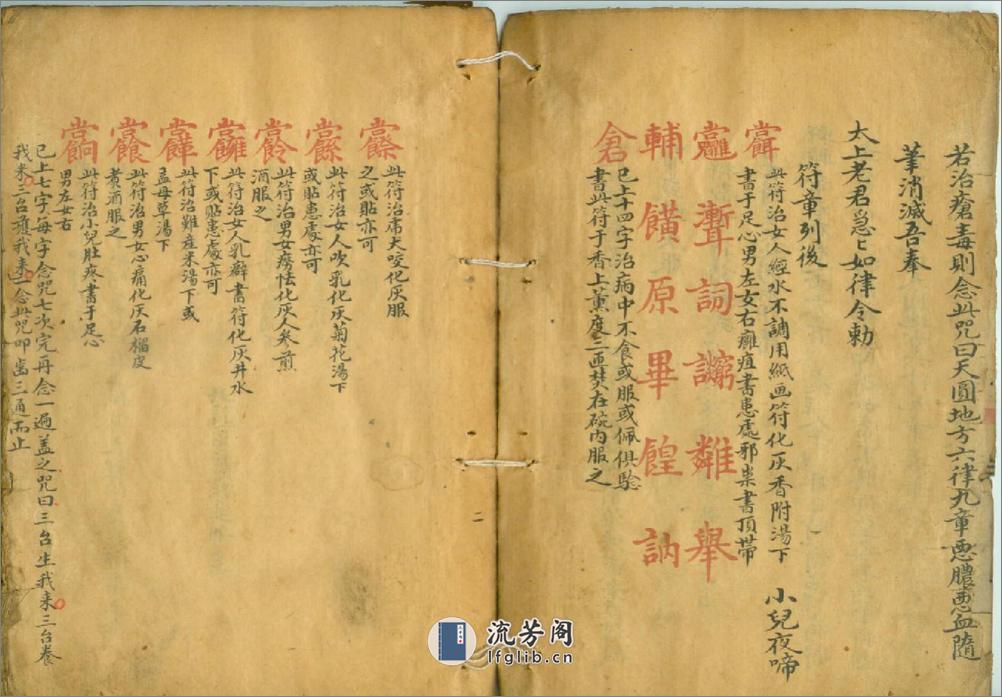 若治瘡毒則念此咒曰天圓地方六律九章惡膿惡血隨
筆消滅吾奉
太上老君急々如律令勅
符章列後
此符治女人經水不調用紙画符化灰香附湯下
書于足心男左女右癰疽書患處邪祟書頂帶
小兒夜啼
詞 舉
輔 原 畢 餭 訥
倉
已上十四字治病中不食或服或佩俱騐
書此符于香上薰度三匝焚在碗内服之
此符治瘋犬咬化灰服
之或貼亦可
此符治女人吹乳化灰菊花湯下
或貼患處亦可
此符治男女癆怯化灰人参煎
酒服之
此符治女人乳癖書符化灰井水
下或貼患處亦可
此符治難產米湯下或
益母草湯下
此符治男女心痛化灰石榴皮
煑酒服之
此符治小兒肚疼書于足心
男左女右
已上七字每字念咒七次完再念一遍盖之咒曰三台生我来三台養
我来三台護我来一念此咒叩齒三通而止
二
流芳阁
lfglib.cn